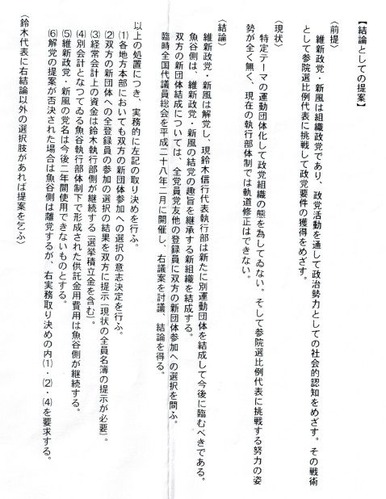 【結論としての提案】
（前提）
維新政党・新風は組織政党であり、政党活動を通して政治勢力としての社会的認知をめざす。その戦術
として参院選比例代表に挑戦して政党要件の獲得をめざす。
（現状）
特定テーマの運動団体化して政党組織の態を為してゐない。そして参院選比例代表に挑戦する努力の姿
勢が全く無く、現在の執行部体制では軌道修正はできない。
（結論）
維新政党・新風は解党し、現鈴木信行代表執行部は新たに別運動団体を結成して今後に臨むべきである。
魚谷側は、維新政党・新風の結党の趣旨を継承する新組織を結成する。
双方の新団体結成については、全党員党友他の登録員に双方の新団体参加への選択を問ふ。
臨時全国代議員総会を平成二十八年二月に開催し、右議案を討議、結論を得る。
以上の処置につき、実務的に左記の取り決めを行ふ。
⑴各地方本部においても双方の新団体参加への選択の意志決定を行ふ。
⑵双方の新団体への全登録員の参加の選択の結果を双方に提示（現状の全員名簿の提示が必要）。
⑶経常会計上の資金は鈴木執行部側が継続する（選挙積立金を含む）。
⑷別会計となつてゐる魚谷執行部体制下で形成された供託金用費用は魚谷側が継続する。
⑸維新政党・新風の党名は今後二年間使用できないものとする。
⑹解党の提案が否決された場合は魚谷側は離党するが、右実務取り決めの内⑴・⑵・⑷を要求する。
（鈴木代表に右結論以外の選択肢があれば提案を乞ふ）